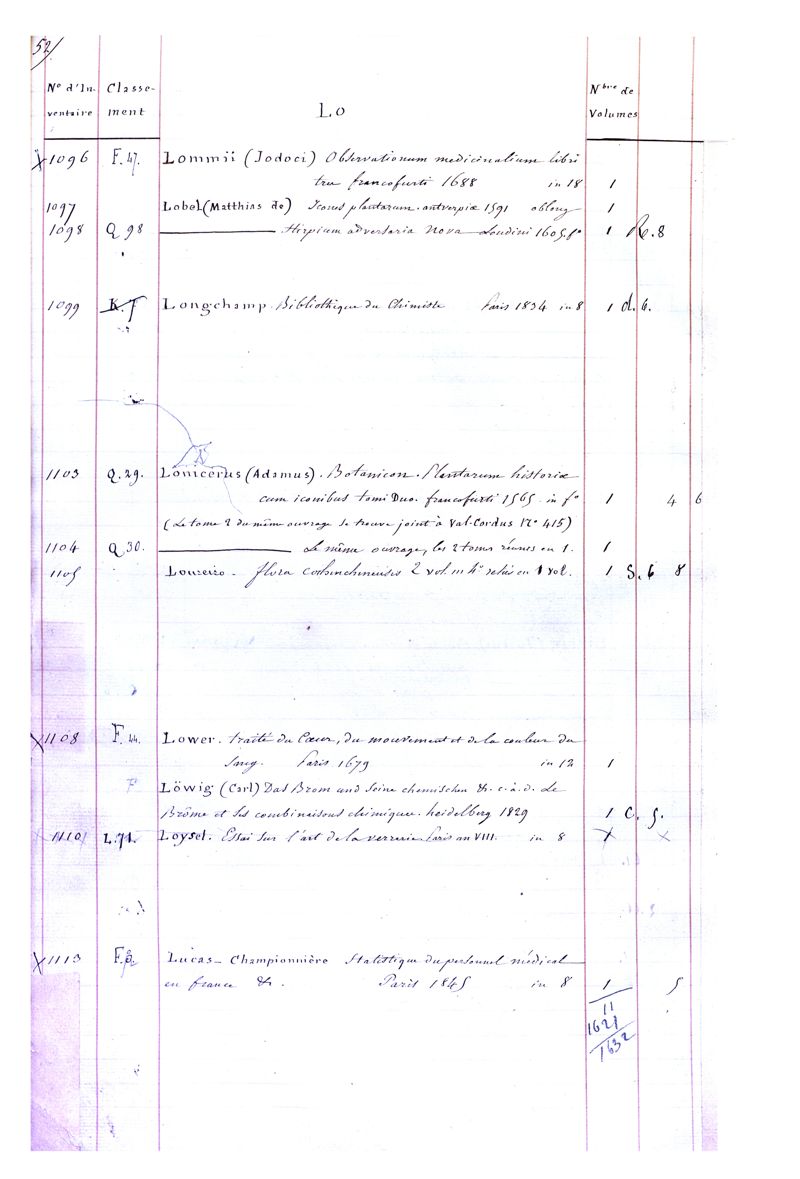 52/
N° d'In- Classe- Nbre de
ventaire ment Lo Volumes
X 1096 F. 47. Lommii (Jodoci) Observationum medicinalium libri
tres francofurti 1688 in 18 1
1097 Lobel (Matthias de) Icones plantarum. antverpiæ 1591 oblong 1
1098 Q 98 Stirpium adversaria nova Londini 1605 f° 1 R. 8
1099 K. 7 Longchamp. Bibliothèque du Chimiste Paris 1834 in 8 1 d. 6.
1103 Q. 29. Lonicerus (Adamus). Botanicon. Plantarum historiæ
cum iconibus tomi Duo. francofurti 1565. in f° 1 4 6
(Le tome 2 du même ouvrage se trouve joint à Val-Cordus N° 415)
1104 Q 30. Le même ouvrage, les 2 tomes réunis en 1. 1
1105 Loureiro. flora cochinchinensis 2 vol. in 4° reliés en 1 vol. 1 S. 6 8
X 1108 F. 44. Lower. traité du Cœur, du mouvement et de la couleur du
Sang. Paris 1679 in 12 1
F Löwig (Carl) Das Brom und seine chemischen &. c. à. d. Le
Brôme et ses combinaisons chimiques. heidelberg 1829 1 C. 5.
X 1110 L. 71. Loysel. Essai sur l'art de la verrerie. Paris an VIII. in 8 X X
X 1113 F. Lucas-Championnière Statistique du personnel médical
en france &. Paris 1845 in 8 1 5
11
1621
1632